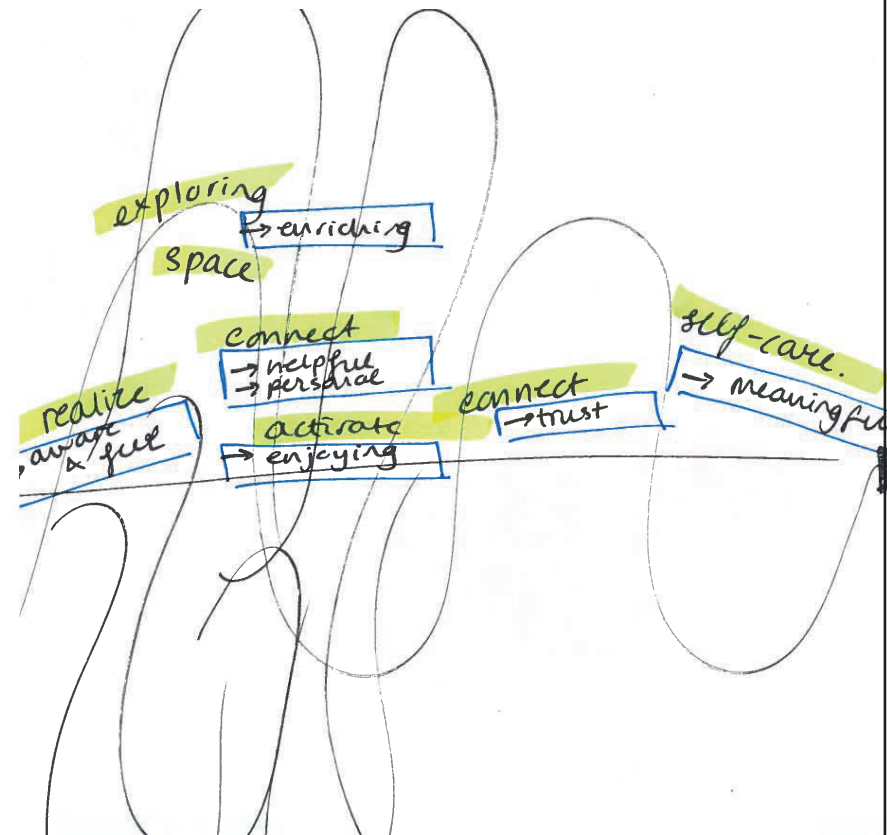 exploring
→ enriching
space
connect
→ helpful
→ personal
realize
aware
& feel
activate
→ enjoying
connect
→ trust
self-care.
→ meaningfu